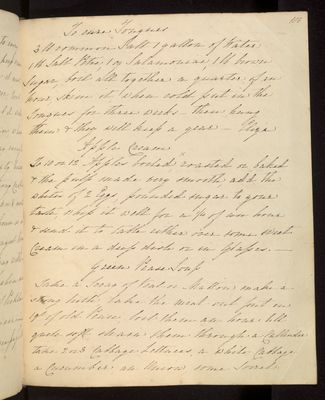 116
To cure Tongues
3 lb common Salt 1 gallon of Water
1 lb Salt Petre 1 oz Salamoniac 1 lb brown
Sugar, boil all together a quarter of an
hour, skim it when cold put in the
Tongues for three weeks - then hung
them & they will keep a year - Eliza
Apple Cream
To 10 or 12 Apples boiled roasted or baked
& the pulp made very smooth, add the
whites of 2 Eggs, pounded sugar to your
taste, whip it well for a 1/4 of an hour
& send it to table either over some Sweet
Cream in a deep dish or in Glasses. -
Green Pease Soup
Take a Scrag of Veal or Mutton make a
strong broth, take the meat out put in
qt of old Pease, boil them an hour till
quite soft strain them through a Cullender
take 2 or 3 Cabbage Lettuces, a White Cabbage
a Cucumber an Onion some Sorrel